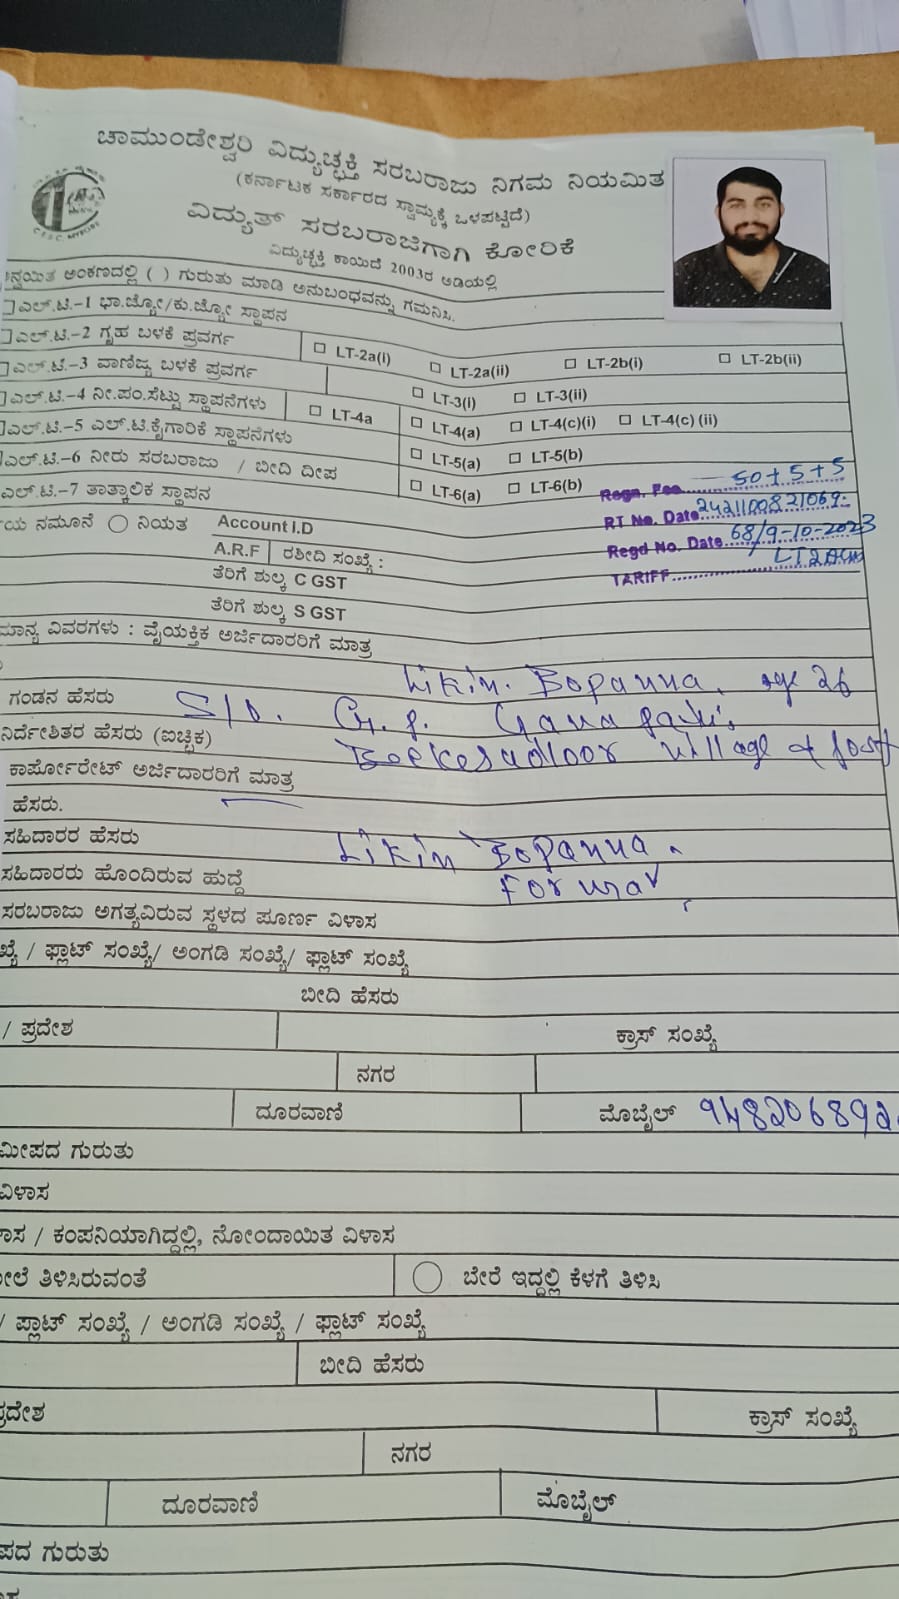 ಚಾಮುಂಡೇಶ್ವರಿ ವಿದ್ಯುಚ್ಛಕ್ತಿ ಸರಬರಾಜು ನಿಗಮ ನಿಯಮಿತ
(ಕರ್ನಾಟಕ ಸರ್ಕಾರದ ಸ್ವಾಮ್ಯಕ್ಕೆ ಒಳಪಟ್ಟಿದೆ)
C.E.S.C. MYSORE
ವಿದ್ಯುತ್ ಸರಬರಾಜಿಗಾಗಿ ಕೋರಿಕೆ
ವಿದ್ಯುಚ್ಛಕ್ತಿ ಕಾಯಿದೆ 2003ರ ಅಡಿಯಲ್ಲಿ
ನ್ವಯಿತ ಅಂಕಣದಲ್ಲಿ ( ) ಗುರುತು ಮಾಡಿ ಅನುಬಂಧವನ್ನು ಗಮನಿಸಿ.
ಎಲ್.ಟಿ.-1 ಭಾ.ಜ್ಯೋ/ಕು.ಜ್ಯೋ ಸ್ಥಾಪನ
ಎಲ್.ಟಿ.-2 ಗೃಹ ಬಳಕೆ ಪ್ರವರ್ಗ LT-2a(i) LT-2a(ii) LT-2b(i) LT-2b(ii)
ಎಲ್.ಟಿ.-3 ವಾಣಿಜ್ಯ ಬಳಕೆ ಪ್ರವರ್ಗ LT-3(i) LT-3(ii)
ಎಲ್.ಟಿ.-4 ನೀ.ಪಂ.ಸೆಟ್ಟು ಸ್ಥಾಪನೆಗಳು LT-4a LT-4(a) LT-4(c)(i) LT-4(c) (ii)
ಎಲ್.ಟಿ.-5 ಎಲ್.ಟಿ.ಕೈಗಾರಿಕೆ ಸ್ಥಾಪನೆಗಳು LT-5(a) LT-5(b)
ಎಲ್.ಟಿ.-6 ನೀರು ಸರಬರಾಜು / ಬೀದಿ ದೀಪ LT-6(a) LT-6(b)
ಎಲ್.ಟಿ.-7 ತಾತ್ಕಾಲಿಕ ಸ್ಥಾಪನ
Regn. Fee 50+5+5
RT No. Date 2421100821069
Regd No. Date 68/9-10-2023
TARIFF
ಯ ನಮೂನೆ ನಿಯತ Account I.D
A.R.F ರಶೀದಿ ಸಂಖ್ಯೆ :
ತೆರಿಗೆ ಶುಲ್ಕ C GST
ತೆರಿಗೆ ಶುಲ್ಕ S GST
ಮಾನ್ಯ ವಿವರಗಳು : ವೈಯಕ್ತಿಕ ಅರ್ಜಿದಾರರಿಗೆ ಮಾತ್ರ
Likin. Bopanna. age 26
ಗಂಡನ ಹೆಸರು S/O. G. P. Ganapathi
ನಿರ್ದೇಶಿತರ ಹೆಸರು (ಐಚ್ಛಿಕ) village & post
ಕಾರ್ಪೋರೇಟ್ ಅರ್ಜಿದಾರರಿಗೆ ಮಾತ್ರ
ಹೆಸರು.
ಸಹಿದಾರರ ಹೆಸರು Likin Bopanna.
ಸಹಿದಾರರು ಹೊಂದಿರುವ ಹುದ್ದೆ
ಸರಬರಾಜು ಅಗತ್ಯವಿರುವ ಸ್ಥಳದ ಪೂರ್ಣ ವಿಳಾಸ
ಖ್ಯೆ / ಫ್ಲಾಟ್ ಸಂಖ್ಯೆ/ ಅಂಗಡಿ ಸಂಖ್ಯೆ/ ಫ್ಲಾಟ್ ಸಂಖ್ಯೆ
ಬೀದಿ ಹೆಸರು
/ ಪ್ರದೇಶ ಕ್ರಾಸ್ ಸಂಖ್ಯೆ
ನಗರ
ದೂರವಾಣಿ ಮೊಬೈಲ್ 948206892
ಮೀಪದ ಗುರುತು
ವಿಳಾಸ
ಾಸ / ಕಂಪನಿಯಾಗಿದ್ದಲ್ಲಿ, ನೋಂದಾಯಿತ ವಿಳಾಸ
ೇಲೆ ತಿಳಿಸಿರುವಂತೆ ಬೇರೆ ಇದ್ದಲ್ಲಿ ಕೆಳಗೆ ತಿಳಿಸಿ
/ ಫ್ಲಾಟ್ ಸಂಖ್ಯೆ / ಅಂಗಡಿ ಸಂಖ್ಯೆ / ಫ್ಲಾಟ್ ಸಂಖ್ಯೆ
ಬೀದಿ ಹೆಸರು
ಪ್ರದೇಶ ಕ್ರಾಸ್ ಸಂಖ್ಯೆ
ನಗರ
ದೂರವಾಣಿ ಮೊಬೈಲ್
ಪದ ಗುರುತು